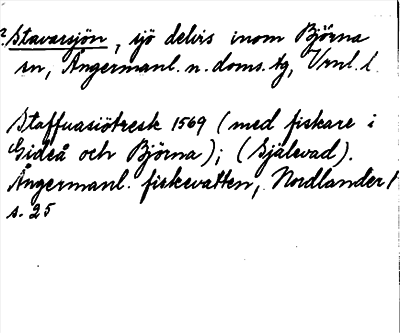 ?Stavarsjön, sjö delvis inom Björna
sn, Ångermanl. n. doms. tg, Vrnl. l.
Staffuasiötresk 1569 (med fiskare i
Gideå och Björna); (Själevad).
Ångermanl. fiskevatten, Nordlander
s. 25